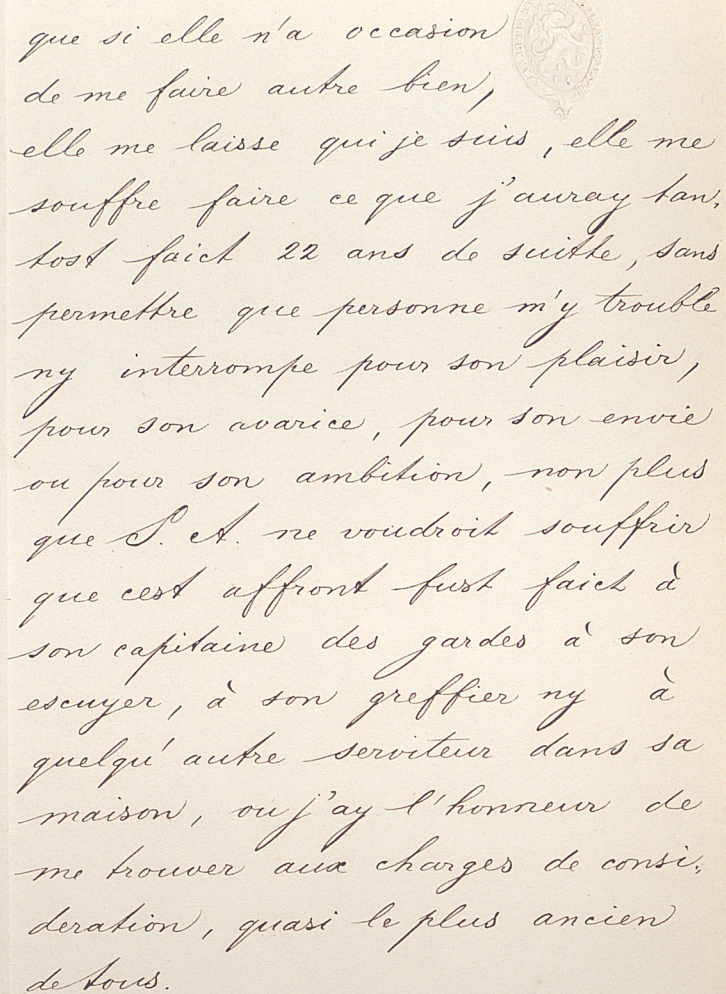 que si elle n'a occasion
de me faire autre bien,
elle me laisse qui je suis, elle me
souffre faire ce que j'auray tan-
tost faict 22 ans de suitte, sans
permettre que personne m'y trouble
ny interrompe pour son plaisir,
pour son avarice, pour son envie
ou pour son ambition, non plus
que S. A. ne voudroit souffrir
que cest affront fust faict à
son capitaine des gardes à son
escuyer, à son greffier ny à
quelqu' autre serviteur dans sa
maison, ou j'ay l'honneur de
me trouver aux charges de consi-
deration, quasi le plus ancien
de tous.